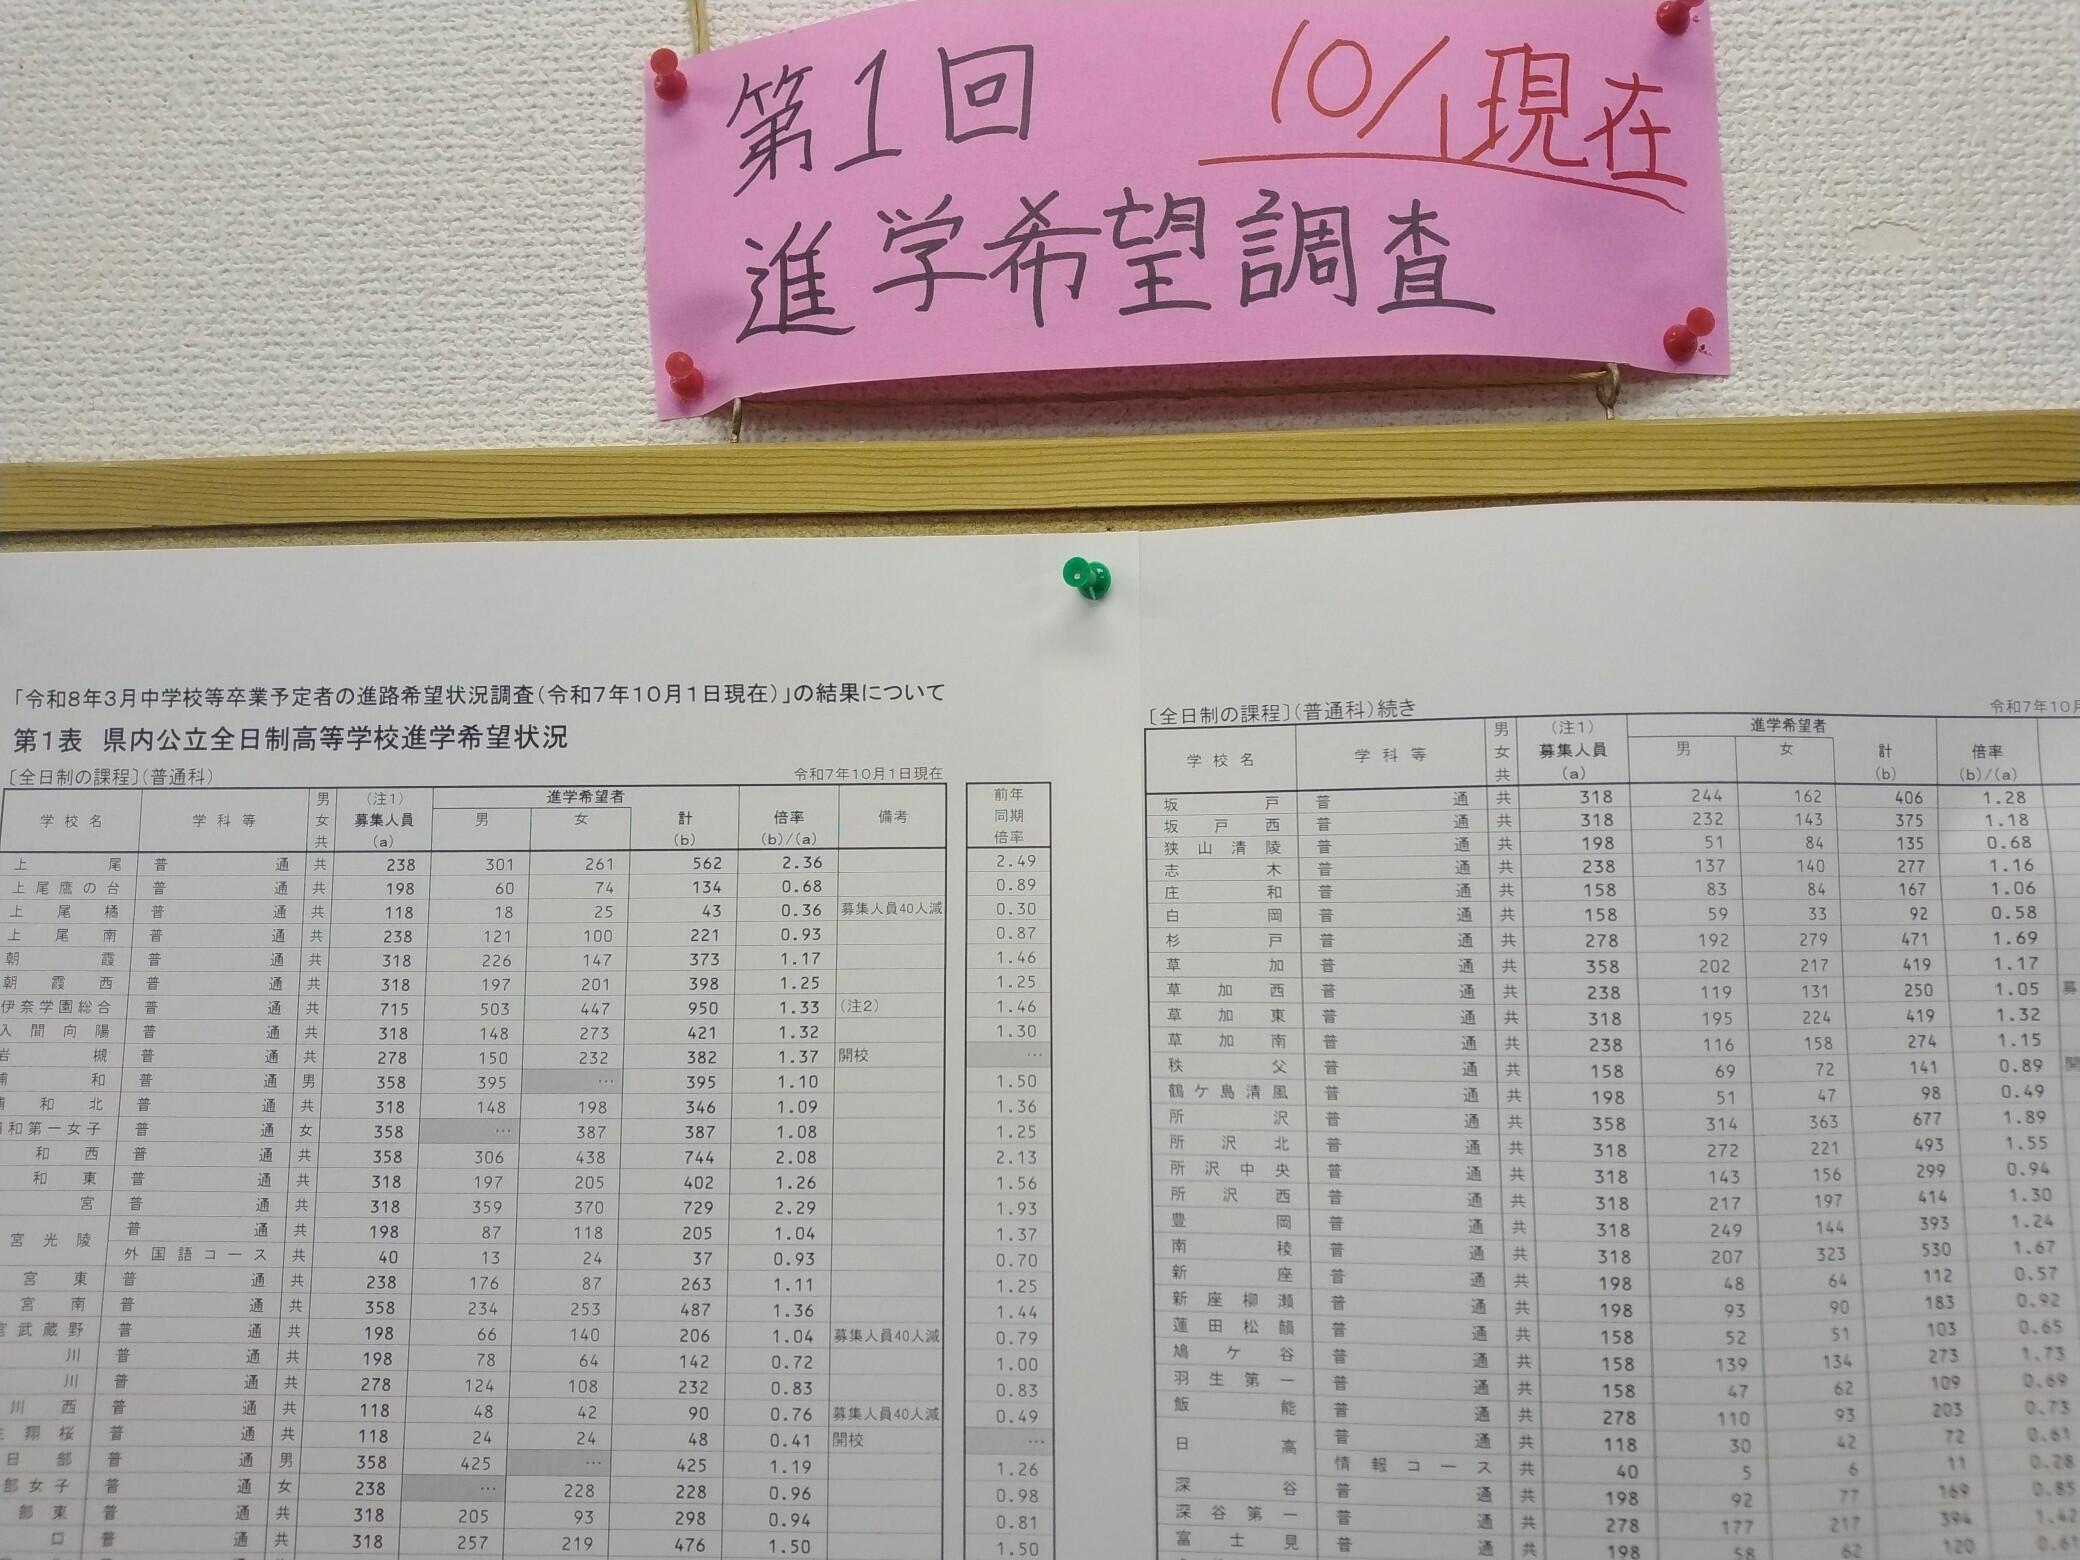 第1回 10/1現在
進学希望調査
「令和8年3月中学校等卒業予定者の進路希望状況調査(令和7年10月1日現在)」の結果について
第1表 県内公立全日制高等学校進学希望状況
〔全日制の課程〕(普通科) 令和7年10月1日現在
学校名 学科等 男女共 (注1)募集人員(a) 進学希望者 男 女 計(b) 倍率(b)/(a) 備考 前年同期倍率
上尾 普通 共 238 301 261 562 2.36 2.49
上尾鷹の台 普通 共 198 60 74 134 0.68 0.89
上尾橘 普通 共 118 18 25 43 0.36 募集人員40人減 0.30
上尾南 普通 共 238 121 100 221 0.93 0.87
朝霞 普通 共 318 226 147 373 1.17 1.46
朝霞西 普通 共 318 197 201 398 1.25 1.25
伊奈学園総合 普通 共 715 503 447 950 1.33 (注2) 1.46
入間向陽 普通 共 318 148 273 421 1.32 1.30
岩槻 普通 共 278 150 232 382 1.37 開校 …
和 普通 男 358 395 … 395 1.10 1.50
和北 普通 共 318 148 198 346 1.09 1.36
和第一女子 普通 女 358 … 387 387 1.08 1.25
和西 普通 共 358 306 438 744 2.08 2.13
和東 普通 共 318 197 205 402 1.26 1.56
宮 普通 共 318 359 370 729 2.29 1.93
宮光陵 普通 共 198 87 118 205 1.04 1.37
外国語コース 共 40 13 24 37 0.93 0.70
宮東 普通 共 238 176 87 263 1.11 1.25
宮南 普通 共 358 234 253 487 1.36 1.44
宮武蔵野 普通 共 198 66 140 206 1.04 募集人員40人減 0.79
川 普通 共 198 78 64 142 0.72 1.00
川 普通 共 278 124 108 232 0.83 0.83
川西 普通 共 118 48 42 90 0.76 募集人員40人減 0.49
翔桜 普通 共 118 24 24 48 0.41 開校 …
日部 普通 男 358 425 … 425 1.19 1.26
部女子 普通 女 238 … 228 228 0.96 0.98
部東 普通 共 318 205 93 298 0.94 0.81
口 普通 共 318 257 219 476 1.50 1.50
〔全日制の課程〕(普通科)続き 令和7年10月
学校名 学科等 男女共 (注1)募集人員(a) 進学希望者 男 女 計(b) 倍率(b)/(a)
坂戸 普通 共 318 244 162 406 1.28
坂戸西 普通 共 318 232 143 375 1.18
狭山清陵 普通 共 198 51 84 135 0.68
志木 普通 共 238 137 140 277 1.16
庄和 普通 共 158 83 84 167 1.06
白岡 普通 共 158 59 33 92 0.58
杉戸 普通 共 278 192 279 471 1.69
草加 普通 共 358 202 217 419 1.17
草加西 普通 共 238 119 131 250 1.05 募
草加東 普通 共 318 195 224 419 1.32
草加南 普通 共 238 116 158 274 1.15
秩父 普通 共 158 69 72 141 0.89 開
鶴ケ島清風 普通 共 198 51 47 98 0.49
所沢 普通 共 358 314 363 677 1.89
所沢北 普通 共 318 272 221 493 1.55
所沢中央 普通 共 318 143 156 299 0.94
所沢西 普通 共 318 217 197 414 1.30
豊岡 普通 共 318 249 144 393 1.24
南稜 普通 共 318 207 323 530 1.67
新座 普通 共 198 48 64 112 0.57
新座柳瀬 普通 共 198 93 90 183 0.92
蓮田松韻 普通 共 158 52 51 103 0.65
鳩ケ谷 普通 共 158 139 134 273 1.73
羽生第一 普通 共 158 47 62 109 0.69
飯能 普通 共 278 110 93 203 0.73
日高 普通 共 118 30 42 72 0.61
情報コース 共 40 5 6 11 0.28
深谷 普通 共 198 92 77 169 0.85
深谷第一 普通 共 278 177 217 394 1.42
富士見 普通 共 198 58 62 120